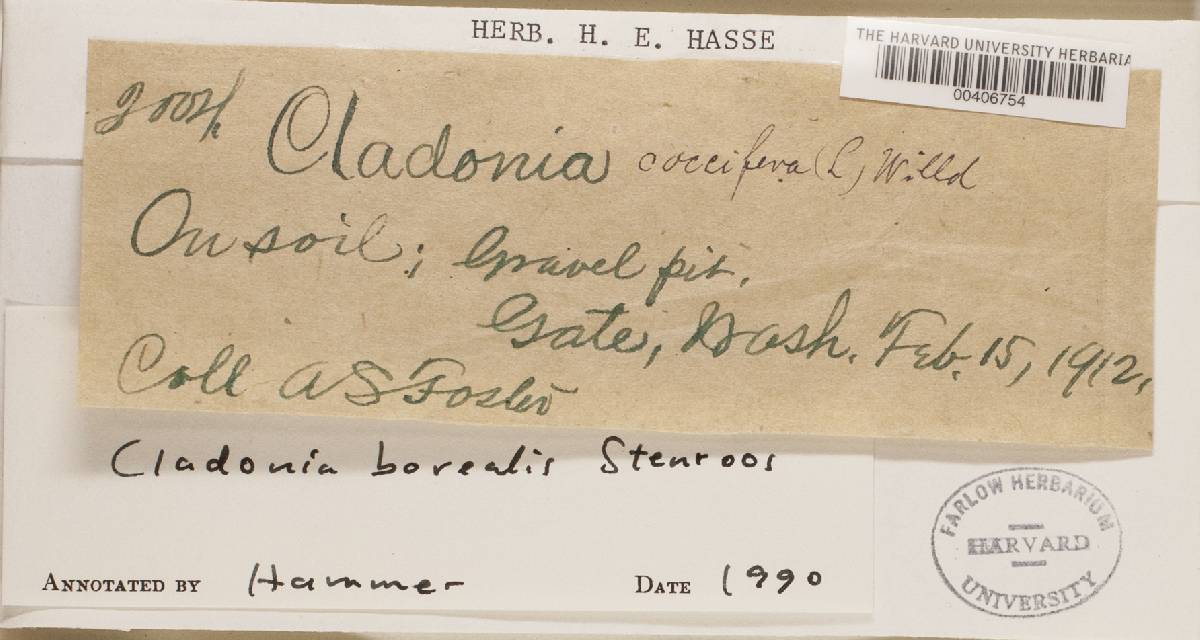 HERB. H. E. HASSE
THE HARVARD UNIVERSITY HERBARIA
00406754
Cladonia coccifera (L) Willd
On soil; Gravel pit.
Gate, Wash. Feb. 15, 1912.
Coll A S Foster
Cladonia borealis Stenroos
ANNOTATED BY Hammer DATE 1990
FARLOW HERBARIUM
HARVARD
UNIVERSITY